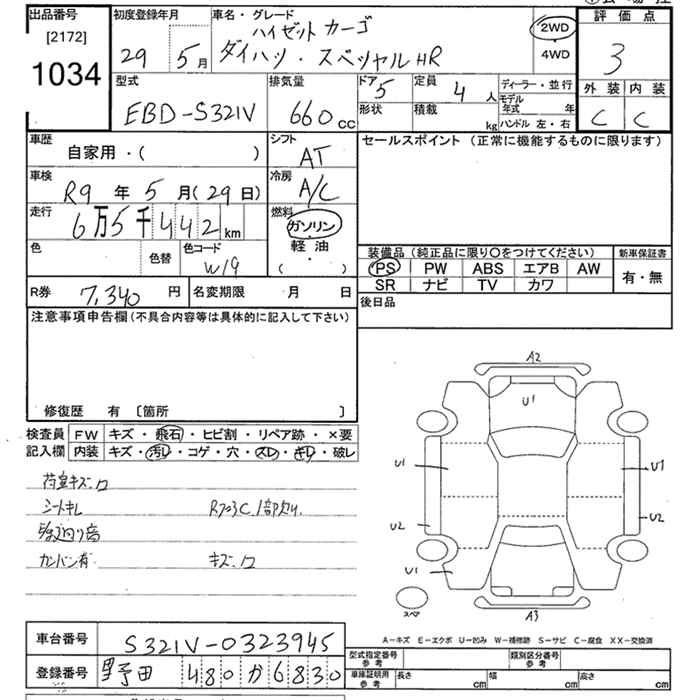 出品番号 [2172] 1034
初度登録年月 29 5月
車名・グレード ハイゼット カーゴ
ダイハツ・スペシャル HR
2WD・4WD
評価点 3
外装 C 内装 C
型式 EBD-S321V
排気量 660cc
ドア 5 定員 4人
形状 積載 kg
ディーラー・並行
モデル年式 年
ハンドル 左・右
車歴 自家用・( )
シフト AT
セールスポイント (正常に機能するものに限ります)
車検 R9年 5月(29日)
冷房 A/C
走行 6万5千442km
燃料 ガソリン 軽油 ・ ( )
色 色替 色コード W19
装備品 (純正品に限り○をつけてください)
PS PW ABS エアB AW
SR ナビ TV カワ
新車保証書 有・無
R券 7,340円 名変期限 月 日
後日品
注意事項申告欄 (不具合内容等は具体的に記入して下さい)
修復歴 有 〔箇所 〕
検査員記入欄
FW キズ・飛石・ヒビ割・リペア跡・×要
内装 キズ・汚レ・コゲ・穴・スレ・キレ・破レ
荷室キズ.凹
シートキレ
カンバン有 キズ・凹
A2
U1
U1 U1
U2 U2
U1
スペア
A3
A－キズ E－エクボ U－凹み W－補修跡 S－サビ C－腐食 XX－交換済
車台番号 S321V-0323945
登録番号 野田 480 か 6830
型式指定番号 参考
類別区分番号 参考
車庫証明用 参考 長さ cm 幅 cm 高さ cm